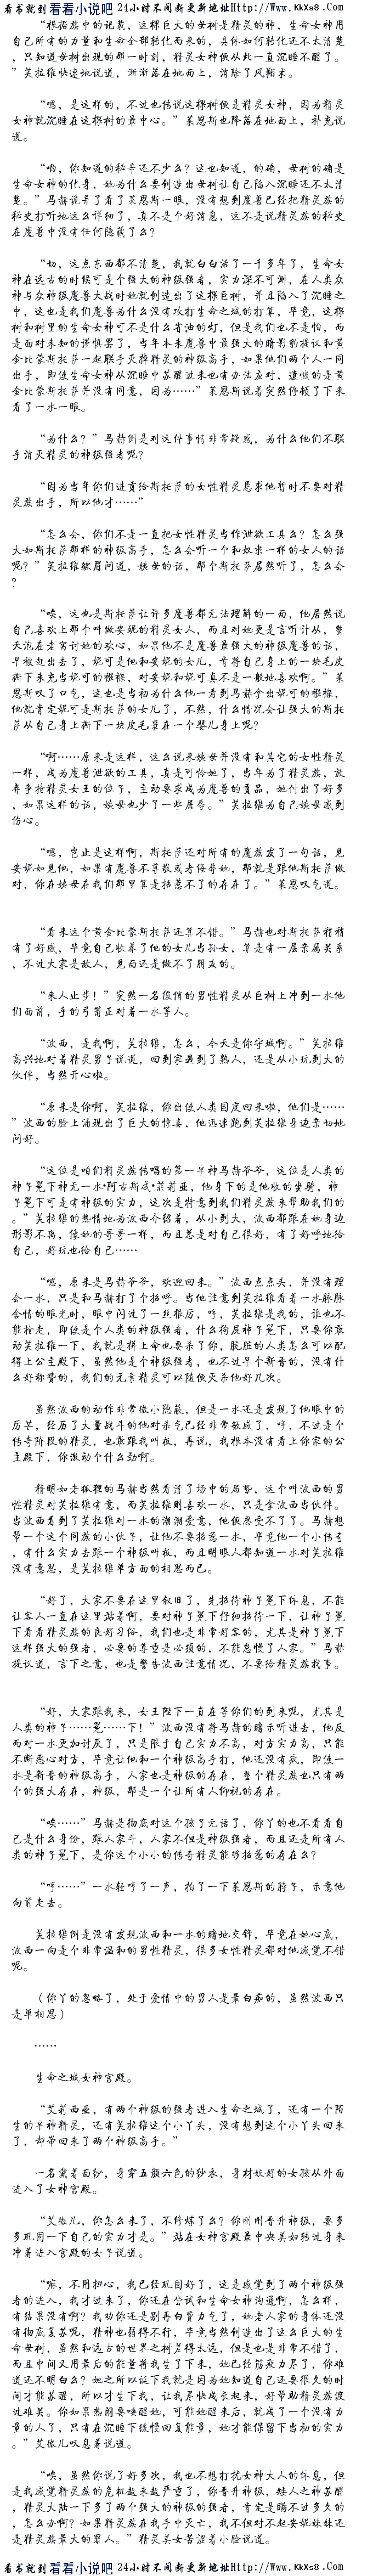 看书就到看看小说吧 24小时不间断更新地址Http://Www.KkXs8.Com
“根据族中的记载，这棵巨大的母树是精灵的神，生命女神用
自己所有的力量和生命全部转化而来的，具体如何转化还不太清楚
，只知道母树出现的那一时刻，精灵女神便从此一直沉睡不醒了。
”芙拉维快速地说道，渐渐落在地面上，消除了风翔术。
“嗯，是这样的，不过也传说这棵树便是精灵女神，因为精灵
女神就沉睡在这棵树的最中心。”莱恩斯也降落在地面上，补充说
道。
“哟，你知道的秘辛还不少么？这也知道，的确，母树的确是
生命女神的化身，她为什么要创造出母树让自己陷入沉睡还不太清
楚。”马赫诡异了看了莱恩斯一眼，没有想到魔兽已经把精灵族的
秘史打听地这么详细了，真不是个好消息，这不是说精灵族的秘史
在魔兽中没有任何隐藏了么？
“切，这点东西都不清楚，我就白白活了一千多年了，生命女
神在远古的时候可是个强大的神级强者，实力深不可测，在人类众
神与众神级魔兽大战时她就创造出了这棵巨树，并且陷入了沉睡之
中，这也是我们魔兽为什么没有攻打生命之城的打算，毕竟，这棵
树和树里的生命女神可不是什么省油的灯，但是我们也不是怕，而
是面对未知的谨慎罢了，当年本来魔兽中最强大的暗影豹提议和黄
金比蒙斯托萨一起联手灭掉精灵的神级高手，如果他们两个人一同
出手，即使生命女神从沉睡中苏醒过来也有办法应对，遗憾的是黄
金比蒙斯托萨并没有同意，因为……”莱恩斯说着突然停顿了下来
看了一水一眼。
“为什么？”马赫倒是对这件事情非常疑惑，为什么他们不联
手消灭精灵的神级强者呢？
“因为当年你们进贡给斯托莎的女性精灵恳求他暂时不要对精
灵族出手，所以他才……”
“怎么会，你们不是一直把女性精灵当作泄欲工具么？怎么强
大如斯托莎那样的神级高手，怎么会听一个和奴隶一样的女人的话
呢？”芙拉维皱眉问道，姨母的话，那个斯托莎居然听了，怎么会
？
“唉，这也是斯托莎让许多魔兽都无法理解的一面，他居然说
自己喜欢上那个叫做安妮的精灵女人，而且对她更是言听计从，整
天泡在老窝讨她的欢心，如果他不是魔兽最强大的神级魔兽的话，
早被赶出去了，妮可是他和安妮的女儿，肯将自己身上的一块毛皮
撕下来充当妮可的襁褓，对安妮和妮可真不是一般地喜欢啊。”莱
恩斯叹了口气，这也是当初为什么他一看到马赫拿出妮可的襁褓，
他就肯定妮可是斯托莎的女儿了，不然，什么情况会让强大的斯托
萨从自己身上撕下一块皮毛裹在一个婴儿身上呢？
“啊……原来是这样，这么说来姨母并没有和其它的女性精灵
一样，成为魔兽泄欲的工具，真是可怜她了，当年为了精灵族，放
弃争抢精灵女王的位子，主动要求成为魔兽的贡品，她付出了好多
，如果这样的话，姨母也少了一些屈辱。”芙拉维为自己姨母感到
伤心。
“嗯，岂止是这样啊，斯托莎还对所有的魔族发了一句话，见
安妮如见他，如果有魔兽不尊敬或者侮辱她，那就是跟他斯托莎做
对，你在姨母在我们那里算是招惹不了的存在了。”莱恩叹气道。
“看来这个黄金比蒙斯托莎还算不错。”马赫也对斯托莎稍稍
有了好感，毕竟自己收养了他的女儿当孙女，算是有一层亲属关系
，不过大家是敌人，见面还是做不了朋友的。
“来人止步！”突然一名俊俏的男性精灵从巨树上冲到一水他
们面前，手的弓箭正对着一水等人。
“波西，是我啊，芙拉维，怎么，今天是你守城啊。”芙拉维
高兴地对着精灵男子说道，回到家遇到了熟人，还是从小玩到大的
伙伴，当然开心啦。
“原来是你啊，芙拉维，你出使人类国度回来啦，他们是……
”波西的脸上涌现出了巨大的惊喜，他迅速跑到芙拉维身亲切地
问好。
“这位是咱们精灵族传唱的第一半神马赫爷爷，这位是人类的
神子冕下神无一水·阿古斯威·菲莉亚，他身下的是他收的坐骑，神
子冕下可是有神级的实力，这次是特意到我们精灵族来帮助我们的
。”芙拉维的热情地为波西介绍着，从小到大，波西都跟在她身边
形影不离，像她的哥哥一样，而且总是对自己很好，有了好呼地给
自己，好玩也给自己……
“嗯，原来是马赫爷爷，欢迎回来。”波西点点头，并没有理
会一水，只是和马赫打了个招呼。当他注意到芙拉维看着一水脉脉
含情的眼光时，眼中闪过了一丝狠厉，哼，芙拉维是我的，谁也不
能抢走，即使是个人类的神级强者，什么狗屁神子冕下，只要你敢
动芙拉维一下，我就是拼上命也要杀了你，肮脏的人类怎么可以配
得上公主殿下，虽然他是个神级强者，也不过早个新晋的，没有什
么好称赞的，我们的元素精灵可以随便灭杀他好几次。
虽然波西的动作非常微小隐蔽，但是一水还是发现了他眼中的
厉芒，经历了大量战斗的他对杀气已经非常敏感了，哼，不过是个
传奇阶段的精灵，也敢跟我叫板，再说，我根本没有看上你家的公
主殿下，你激动个什么劲啊。
精明如老狐狸的马赫当然看清了场中的局势，这个叫波西的男
性精灵对芙拉维有意，而芙拉维则喜欢一水，只是拿波西当伙伴。
当波西看到了芙拉维对一水的潮潮爱意，他便忍受不了了。马赫想
帮一个这个同族的小伙子，让他不要招惹一水，毕竟他一个小传奇
，有什么实力去跟一个神级叫板，而且明眼人都知道一水对芙拉维
没有意思，是芙拉维单方面的相思而已。
“好了，大家不要在这里叙旧了，先招待神子冕下休息，不能
让客人一直在这里站着啊，要对神子冕下仔细招待一下，让神子冕
下看看精灵族的良好习俗，我们也是非常好客的，尤其是神子冕下
这样强大的强者，必要的尊重是必须的，不能怠慢了人家。”马赫
提议道，言下之意，也是警告波西注意情况，不要给精灵族找事。
“好，大家跟我来，女王陛下一直在等你们的到来呢，尤其是
人类的神子……冕……下！”波西没有将马赫的暗示听进去，他反
而对一水更加讨厌了，只是限于自己实力不高，对方实力高，只能
不断恶心对方，毕竟让他和一个神级高手打，他还没有疯，即使一
水是新晋的神级高手，人家也是神级的存在，整个精灵族也只有两
个的强大存在，神级，那是一个让所有人仰视的存在。
“唉……”马赫是彻底对这个孩子无语了，你丫的也不看看自
己是什么身份，跟人家斗，人家不但是神级强者，而且还是所有人
类的神子冕下，是你这个小小的传奇精灵能够招惹的存在么？
“哼……”一水轻哼了一声，拍了一下莱恩斯的脖子，示意他
向前走去。
芙拉维倒是没有发现波西和一水的暗地交锋，毕竟在她心底，
波西一向是个非常温和的男性精灵，很多女性精灵都对他感觉不错
呢。
（你丫的忽略了，处于爱情中的男人是最白痴的，虽然波西只
是单相思）
……
生命之城女神宫殿。
“艾莉西亚，有两个神级的强者进入生命之城了，还有一个陌
生的半神精灵，还有芙拉维这个小丫头，没有想到这个小丫头回来
了，却带回来了两个神级高手。”
一名戴着面纱，身穿五颜六色的纱衣，身材姣好的女孩从外面
进入了女神宫殿。
“艾微儿，你怎么来了，不修炼了么？你刚刚晋升神级，要多
多巩固一下自己的实力才是。”站在女神宫殿最中央美如转过身来
冲着进入宫殿的女子说道。
“嘛，不用担心，我已经巩固好了，这是感觉到了两个神级强
者的进入，我才过来了，你还在尝试和生命女神沟通啊，怎么样，
有结果没有啊？我劝你还是别再白费力气了，她老人家的身体还没
有彻底复苏呢，精神也弱得不行，毕竟当然创造出了这么巨大的生
命母树，虽然和远古的世界之树差得太远，但是也是非常不错了，
而且中间又用最后的能量将我生了下来，她已经筋疲力尽了，你难
道还不明白？她之所以诞下我就是因为她知道自己还要很久的时
间才能苏醒，所以才生下我，让我尽快成长起来，好帮助精灵族渡
过难关。你如果热闹要唤醒她，可能她醒来后，就成了一个没有力
量的人了，只有在沉睡下缓慢回复能量，她才能保留下当初的实力
。”艾微儿叹息着说道。
“唉，虽然你说了好多次，我也不想打扰女神大人的休息，但
是我感觉精灵族的危机越来越严重了，你晋升神级，矮人之神苏醒
，精灵大陆一下多了两个强大的神级的强者，肯定是瞒不过多久的
，怎么办啊？如果精灵族在我手中灭亡，我不但对不起安妮妹妹还
是精灵族最大的罪人。”精灵美女苦涩着小脸说道。
看书就到看看小说吧 24小时不间断更新地址Http://Www.KkXs8.Com